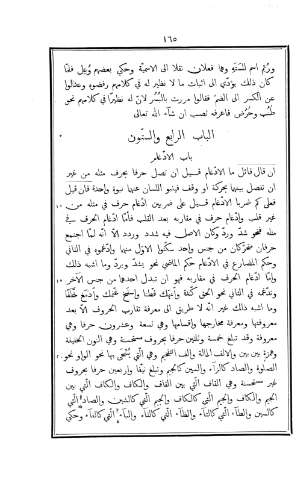 ١٦٥
ورئم اسم للسته وهما فعلان نقلا الى الاسمية وحكى بعضهم وعل فلما
كان ذلك يؤدى الى اثبات ما لا نظير له فى كلامهم رفضوه وعدلوا
عن الكسر الى الضم فقالوا مررت بالبسر لان له نظيرا فى كلامهم نحو
طنب وحرض فاعرفه نصب ان شآء الله تعالى
الباب الرابع والستون
باب الادغام
ان قال قائل ما الادغام قيل ان تصل حرفا بحرف مثله من غير
ان تفصل بينهما بحركة او وقف فينبو اللسان عنهما نبوة واحدة فان قيل
فعلى كم ضربا الادغام قيل على ضربين ادغام حرف فى مثله من
غير قلب وادغام حرف فى مقاربه بعد القلب فأما ادغام الحرف فى
مثله فنحو شد ورد وكان الاصل فيه شدد وردد الا انه لما اجتمع
حرفان متحركان من جنس واحد سكنوا الاول منهما وادغموه فى الثانى
وحكم المضارع فى الادغام حكم الماضى نحو يشد ويرد وما اشبه ذلك
وإما ادغام الحرف فى مقاربه فهو ان تبدل احدهما من جنس الآخر
وتدغمه فى الثانى نحو الحق كلدة وانهك قطنا واسلخ غنمك وادمغ خلفا
وما اشبه ذلك غير انه لا طريق الى معرفة تقارب الحروف الا بعد
معرفتها ومعرفة مخارجها واقسامها وهى تسعة وعشرون حرفا وهى
معروفة وقد تبلغ خمسة وثلثين حرفا بحروف مستحسنة وهى النون الخفيفة
وهمزة بين بين والالف الممالة والف التفخيم وهى التى ينحى بها نحو الواو نحو
الصلوة والصاد كالزآء والشين كالجيم وتبلغ نيفا واربعين حرفا بحروف
غير مستحسنة وهى القاف التى بين القاف والكاف والكاف التى بين
الجيم والكاف والجيم التى كالكاف والجيم التى كالشين والصاد التى
كالسين والطآء التى كالتآء والظآء التى كالثآء والبآء التى كالفآء وحكى